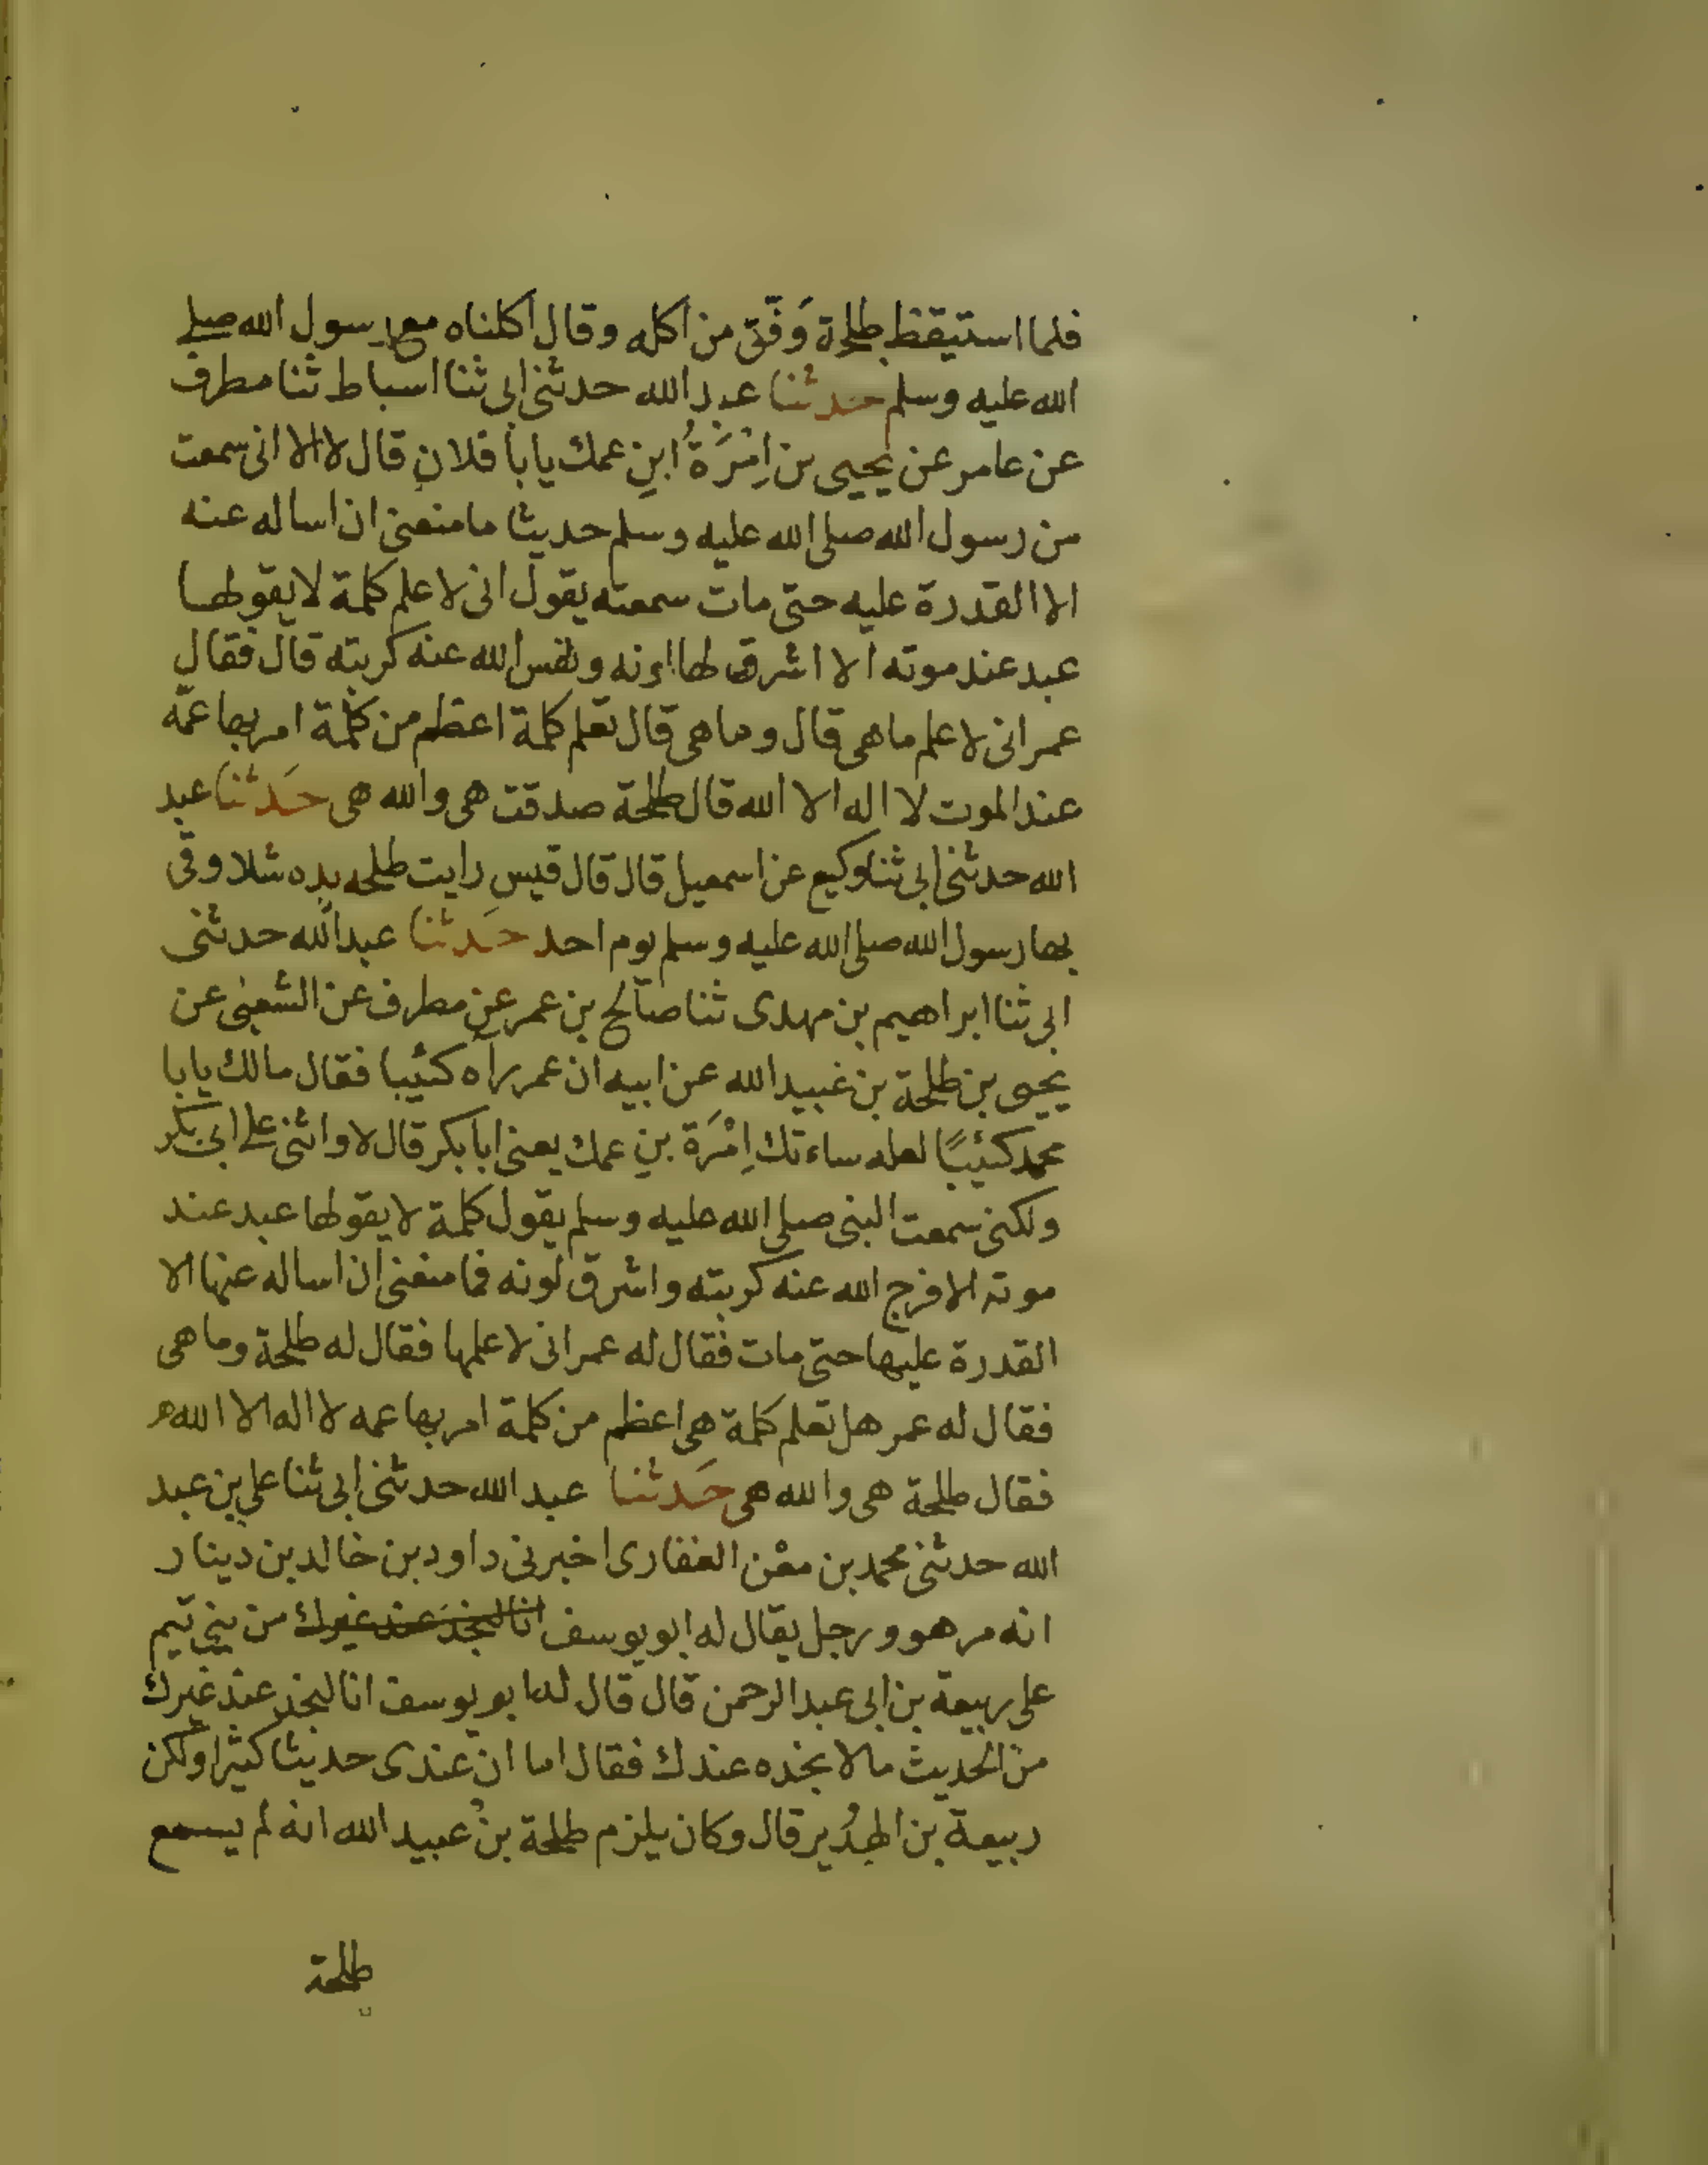 فلما استيقظ طلحة وَفّق من اكله وقال اكلناه مع رسول الله صلى
الله عليه وسلم حدثنا عبد الله حدثنى ابى ثنا اسباط ثنا مطرف
عن عامر عن يحيى بن اِمْرَةُ ابنِ عمك يابا فلان قال لا الا انى سمعت
من رسول الله صلى الله عليه وسلم حديثا ما منعنى ان اساله عنه
الا القدرة عليه حتى مات سمعته يقول انى لاعلم كلمة لا يقولها
عبد عند موته الا اشرق لها لونه ونفس الله عنه كربته قال فقال
عمر انى لاعلم ما هى قال وما هى قال تعلم كلمة اعظم من كلمة امر بها عمّه
عند الموت لا اله الا الله قال طلحة صدقت هى والله هى حَدثنا عبد
الله حدثنى ابى ثنا وكيع عن اسمعيل قال قال قيس رايت طلحه يده شلا وقى
بها رسول الله صلى الله عليه وسلم يوم احد حَدثنا عبد الله حدثنى
ابى ثنا ابراهيم بن مهدى ثنا صالح بن عمر عن مطرف عن الشعبى عن
يحيى بن طلحة بن عبيد الله عن ابيه ان عمر رآه كئيبا فقال مالك يابا
محمد كئيبًا لعله ساءتك اِمْرَة بن عمك يعنى ابا بكر قال لا واثنى على ابى بكر
ولكنى سمعت النبى صلى الله عليه وسلم يقول كلمة لا يقولها عبد عند
موته الا فرج الله عنه كربته واشرق لونه فما منعنى ان اساله عنها الا
القدرة عليها حتى مات فقال له عمر انى لاعلمها فقال له طلحة وما هى
فقال له عمر هل تعلم كلمة هى اعظم من كلمة امر بها عمه لا اله الا الله
فقال طلحة هى والله هى حَدثنا عبد الله حدثنى ابى ثنا على بن عبد
الله حدثنى محمد بن معْن الغفارى اخبرنى داود بن خالد بن دينار
انه مر هو ورجل يقال له ابو يوسف انا لنجد عند غيرك من بنى تيم
على ربيعة بن ابى عبد الرحمن قال قال له ابو يوسف انا لنجد عند غيرك
من الحديث مالا نجده عندك فقال اما ان عندى حديثا كثيرا ولكن
ربيعة بن الهدُير قال وكان يلزم طلحة بن عبيد الله انه لم يسمع
طلحة